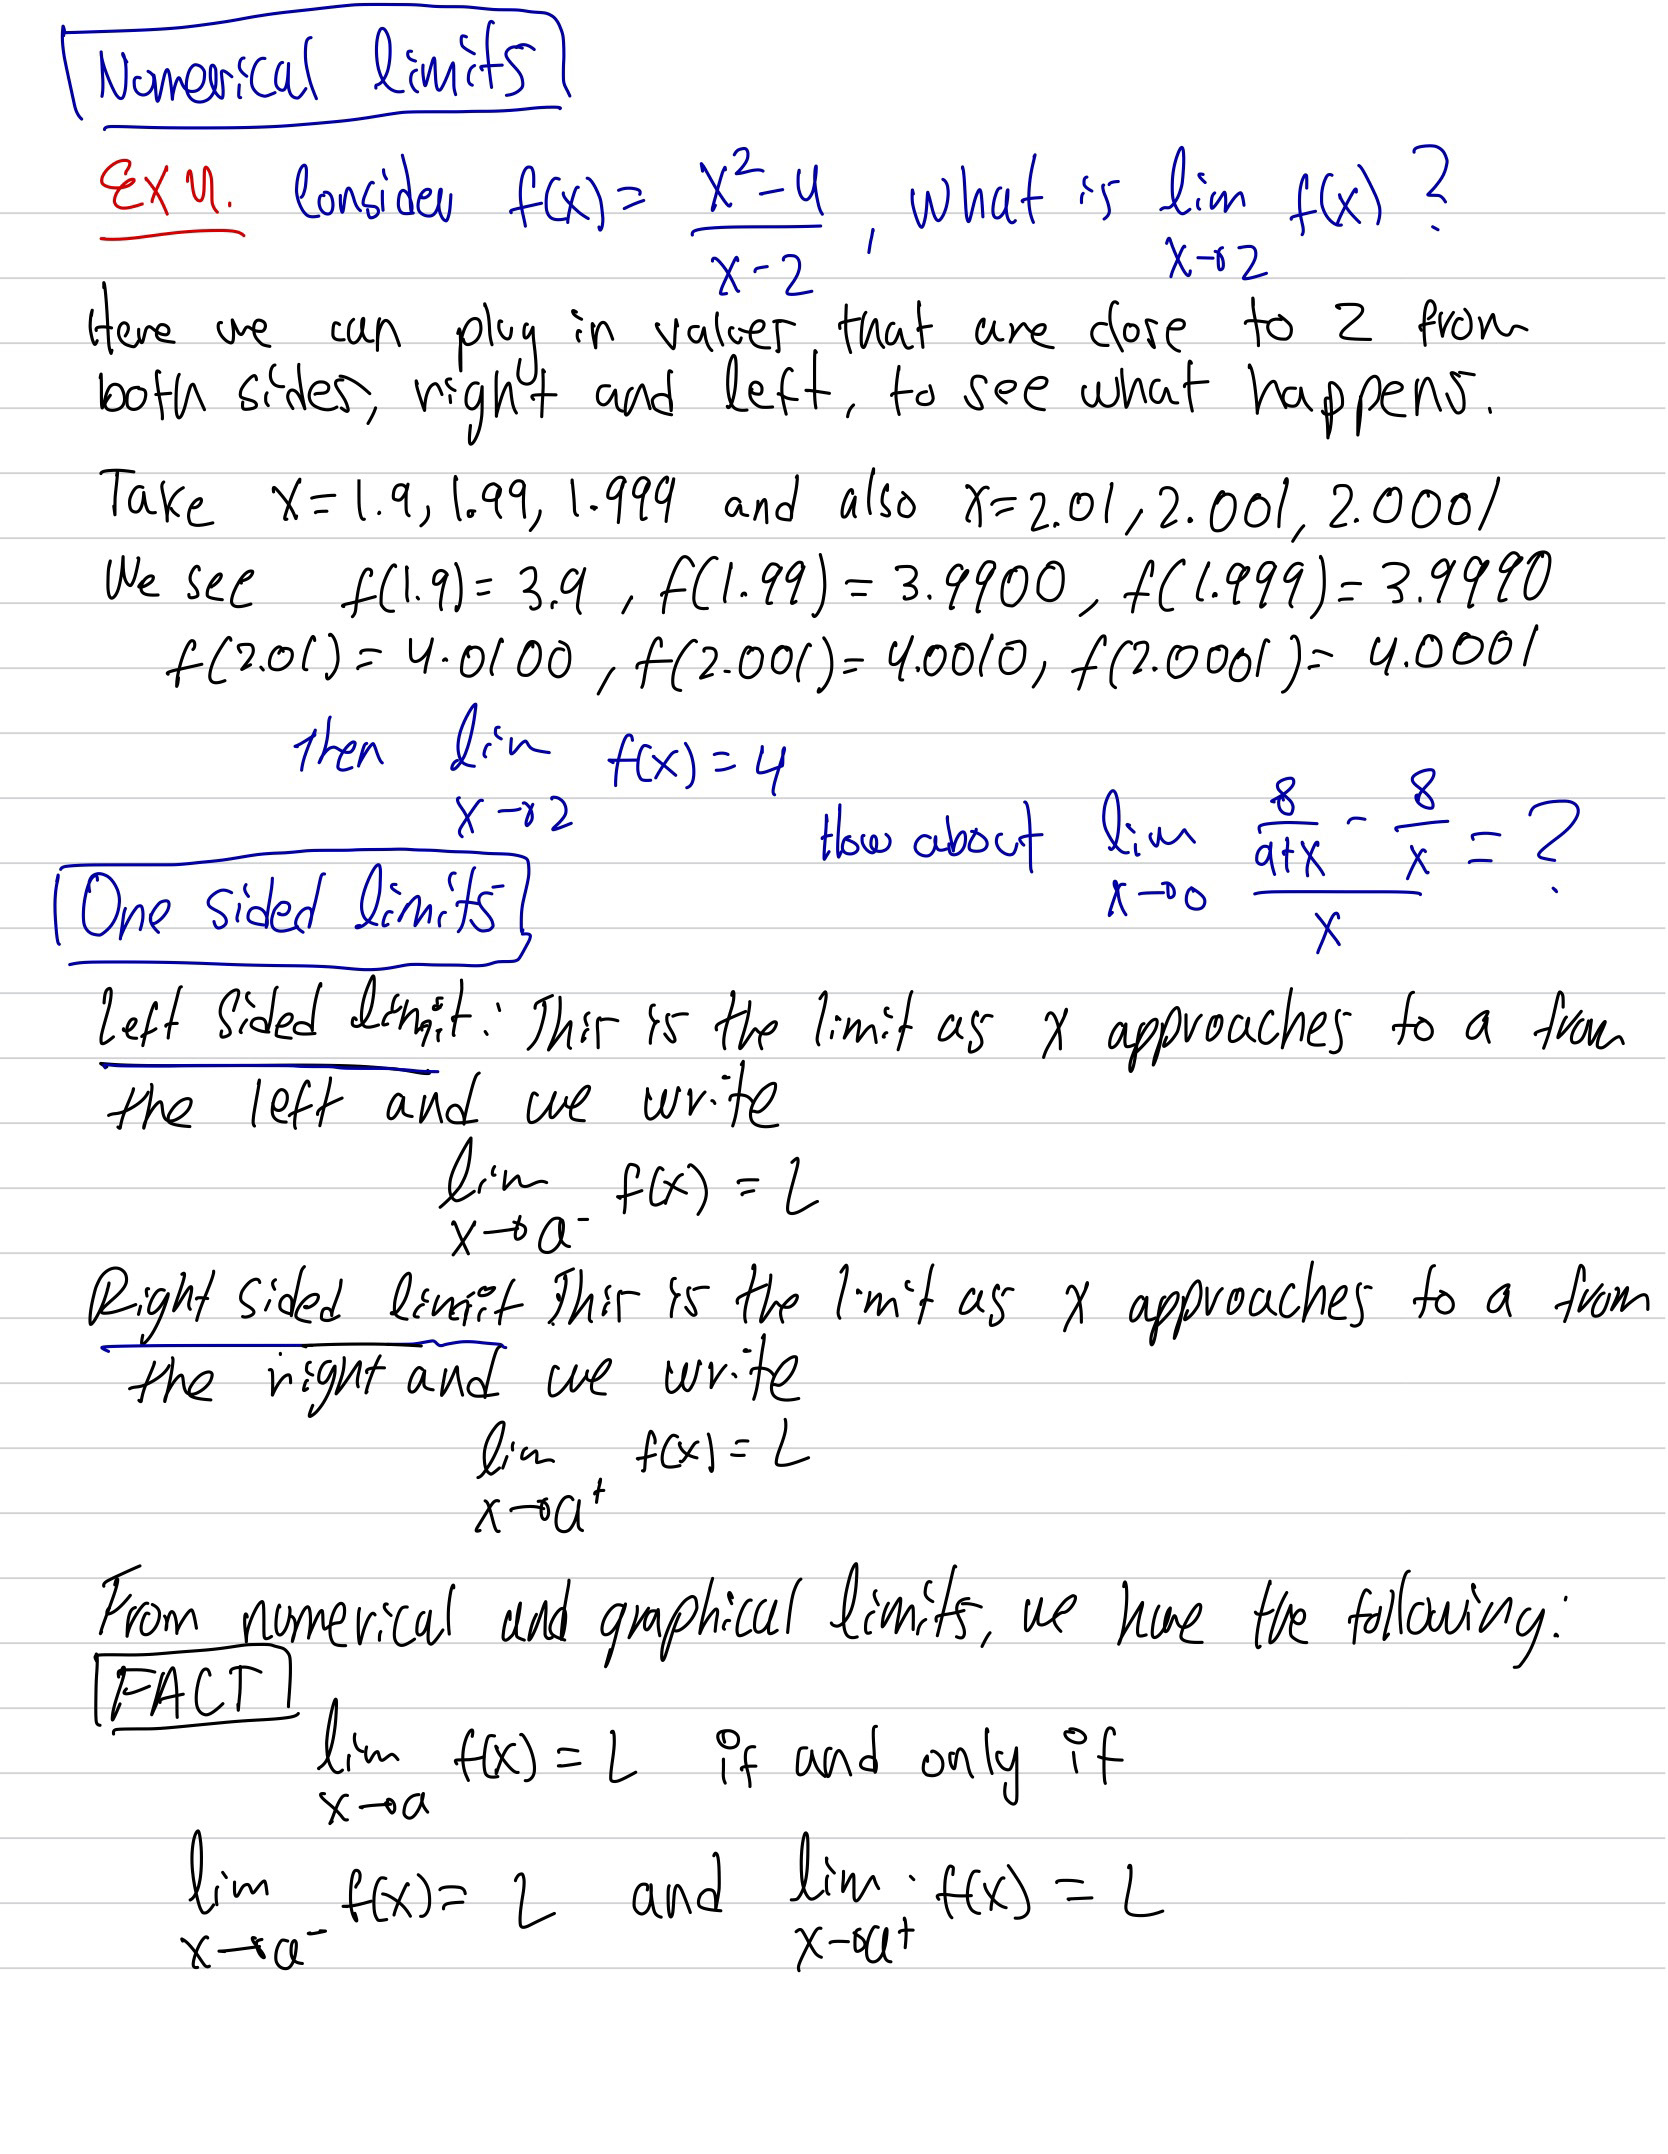 Numerical limits
Ex 4. Consider f(x) = (x² - 4)/(x - 2), what is lim x→2 f(x) ?
Here we can plug in values that are close to 2 from
both sides, right and left, to see what happens.
Take x = 1.9, 1.99, 1.999 and also x = 2.01, 2.001, 2.0001
We see f(1.9) = 3.9, f(1.99) = 3.9900, f(1.999) = 3.9990
f(2.01) = 4.0100, f(2.001) = 4.0010, f(2.0001) = 4.0001
then lim x→2 f(x) = 4
How about lim x→0 (8/(9+x) - 8/x)/x = ?
One sided limits
Left sided limit: This is the limit as x approaches to a from
the left and we write
lim x→a⁻ f(x) = L
Right sided limit This is the limit as x approaches to a from
the right and we write
lim x→a⁺ f(x) = L
From numerical and graphical limits, we have the following:
FACT
lim x→a f(x) = L if and only if
lim x→a⁻ f(x) = L and lim x→a⁺ f(x) = L